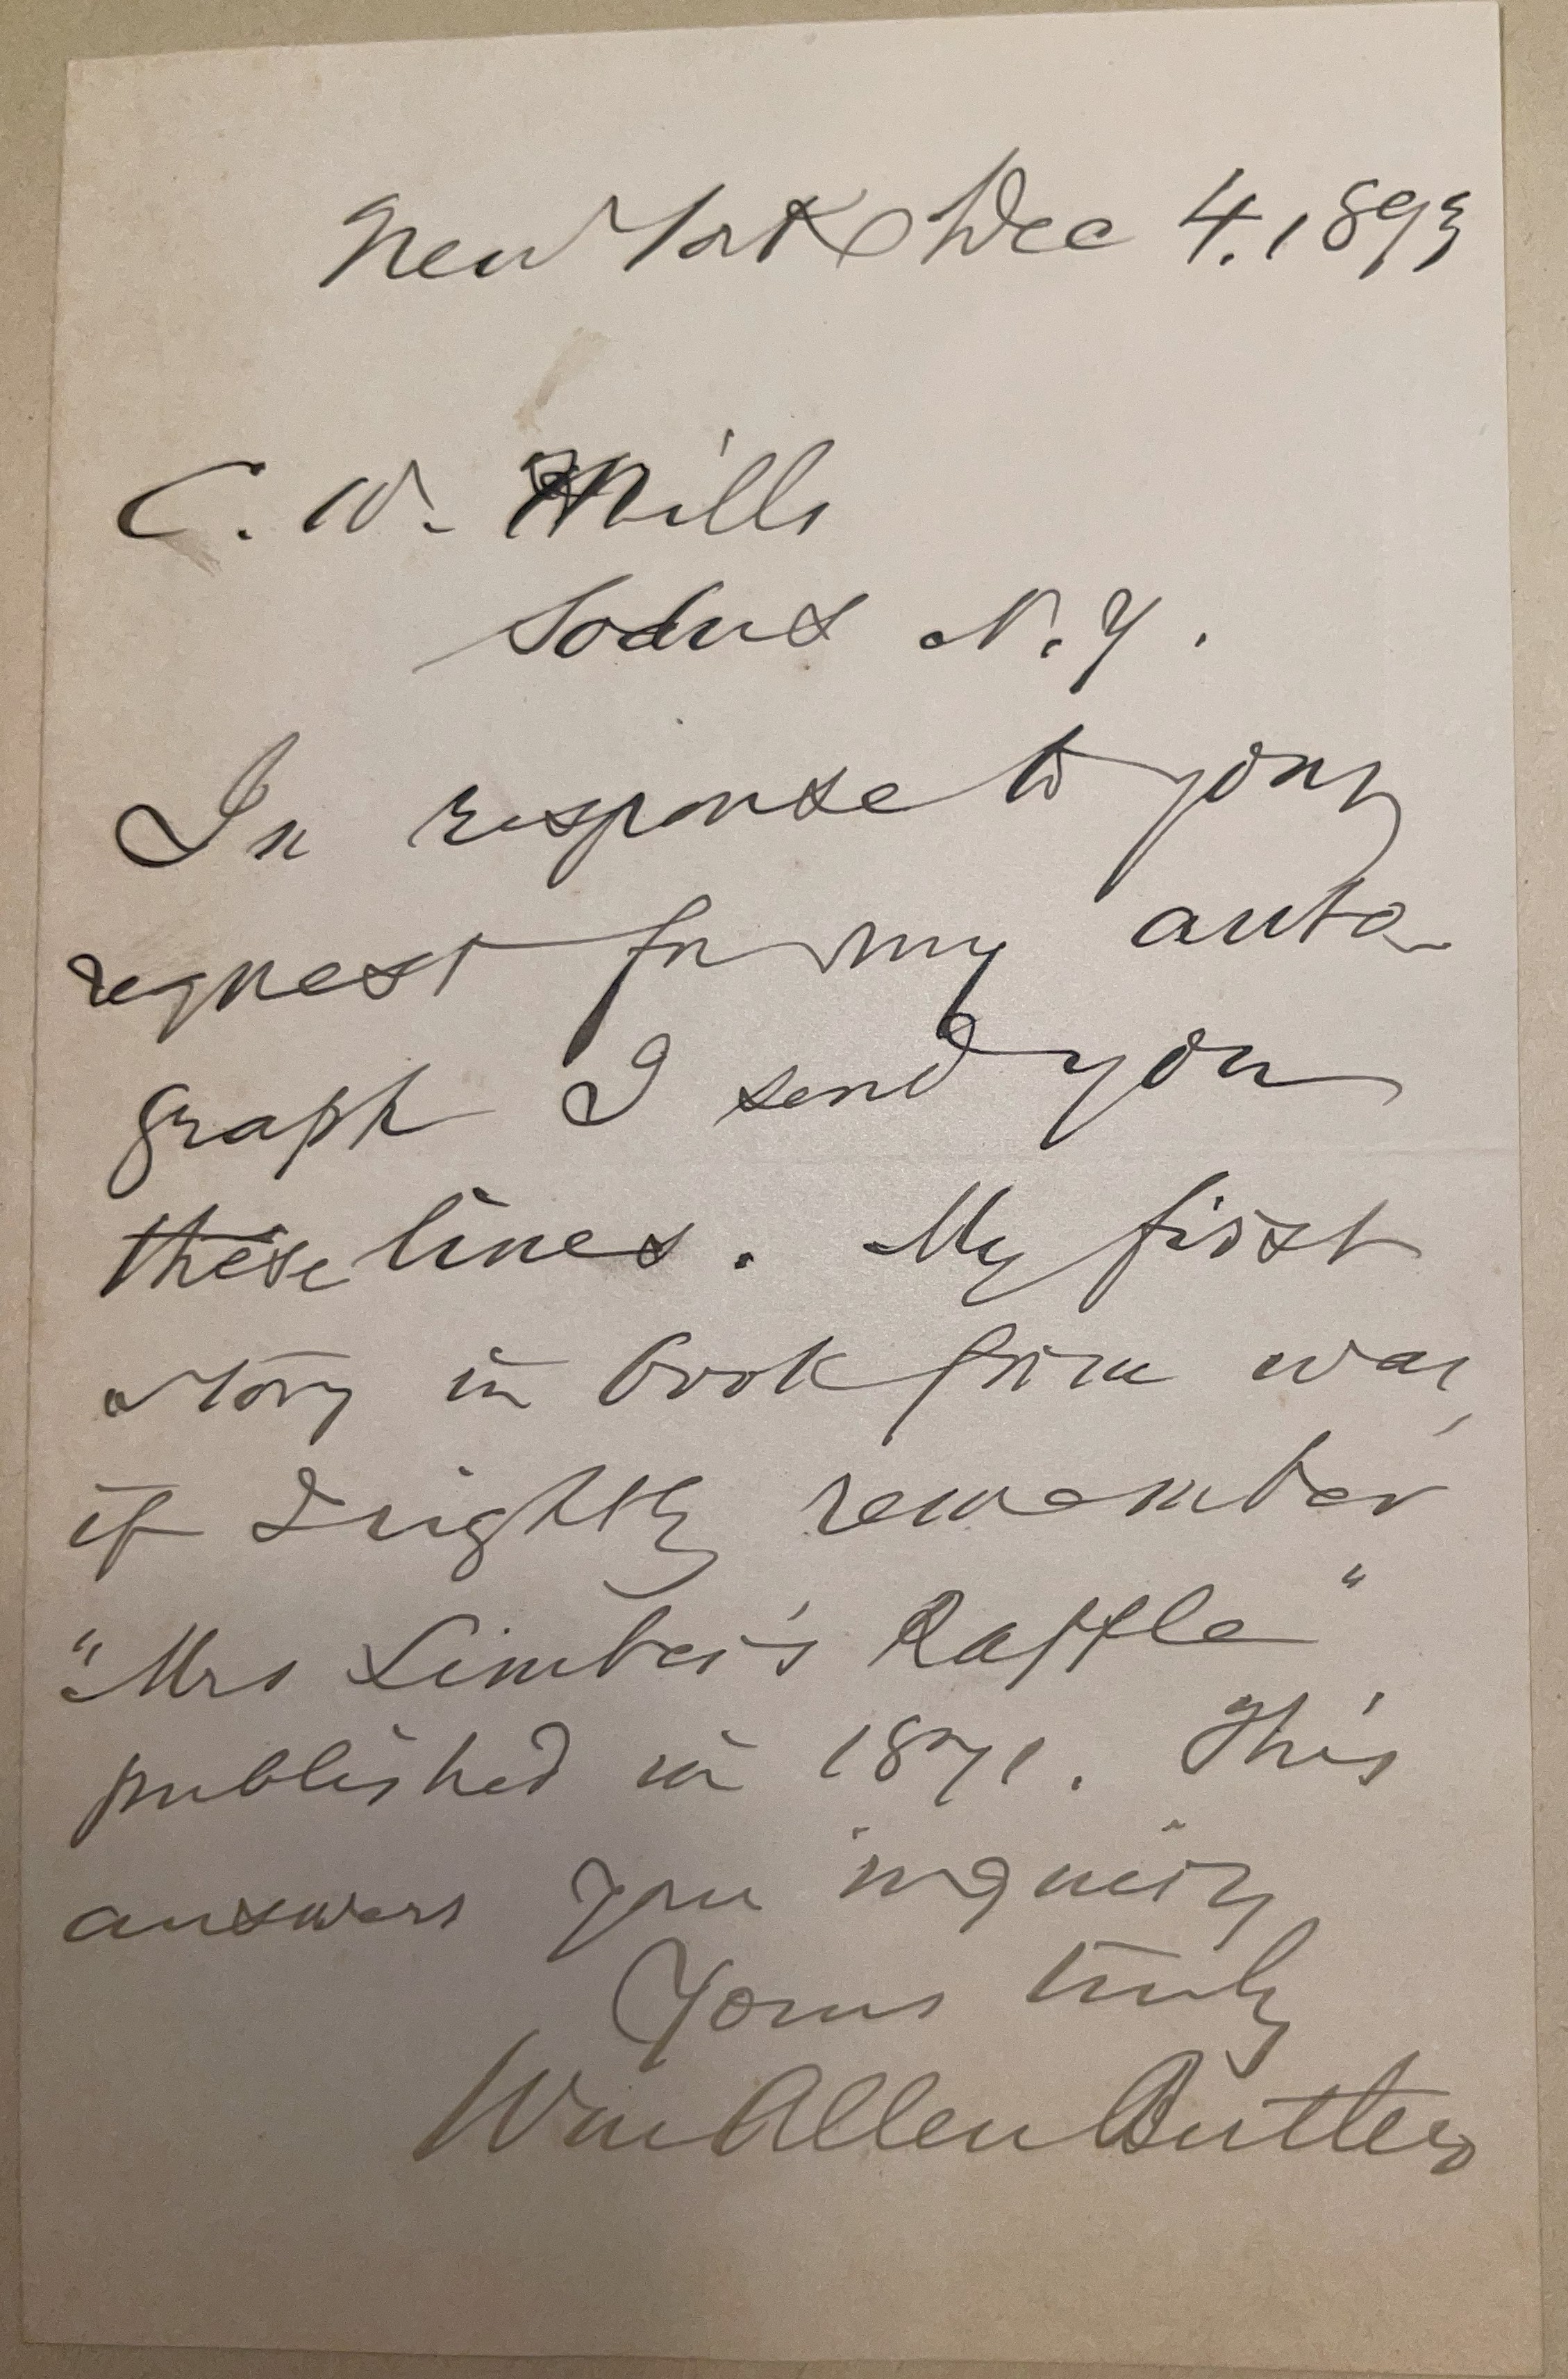 New York Dec 4. 1893
C. W. Mills
Sodus N. Y.
In response to your
request for my auto
graph I send you
these lines. My first
story in book form was,
if I rightly remember
"Mrs Limber's Raffle"
published in 1871. This
answers your inquiry
Yours truly
Wm Allen Butler